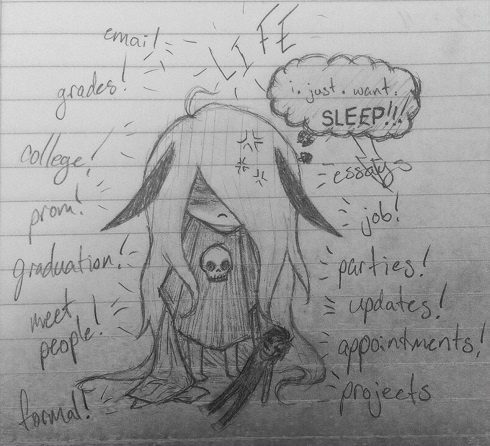 LIFE
email
grades!
college!
prom!
graduation!
meet
people!
formal!
i. just. want.
SLEEP!!!
essays
job!
parties!
updates!
appointments!
projects